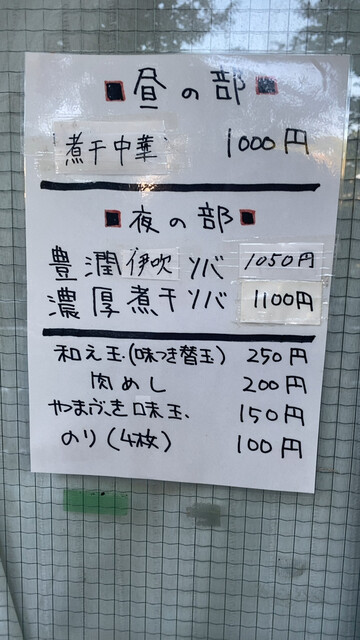 ■昼の部■
煮干中華 1000円
■夜の部■
豊潤伊吹ソバ 1050円
濃厚煮干ソバ 1100円
和え玉(味つき替玉) 250円
肉めし 200円
やまぶき味玉 150円
のり(4枚) 100円